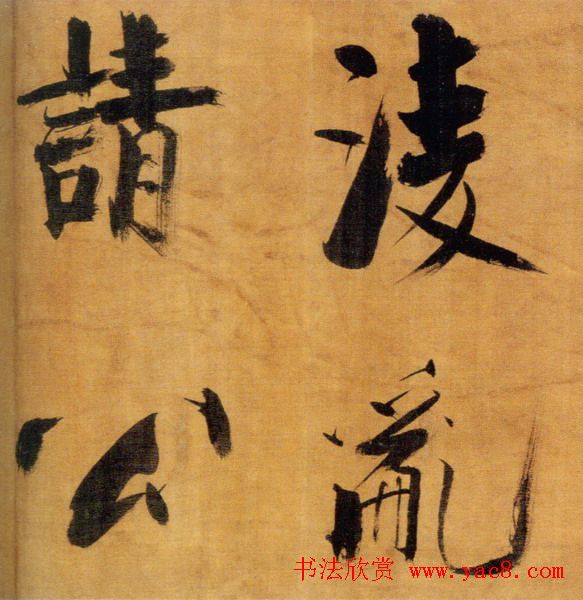 淩亂
請公
书法欣赏 www.yac8.com